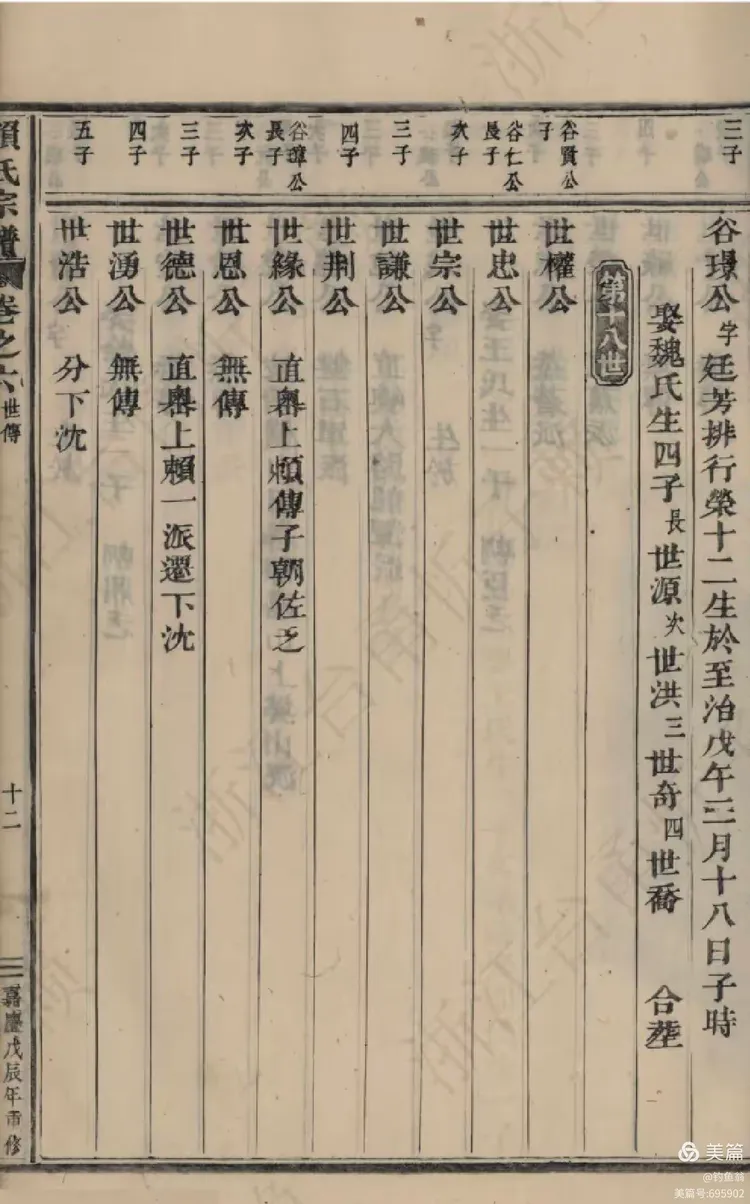 三子
谷璟公 字廷芳排行榮十二生於至治戊午三月十八日子時
娶魏氏生四子 長世源 次世洪 三世奇 四世喬 合塟
第十八世
谷賢公子
世權公
谷仁公長子
世忠公
次子
世宗公
三子
世謙公
四子
世荆公
谷璋公長子
世緣公 直嶴上賴傳子朝佐之
次子
世恩公 無傳
三子
世德公 直嶴上賴一派遷下沈
四子
世湧公 無傳
五子
世浩公 分下沈
賴氏宗譜 卷之六 世傳 十二 嘉慶戊辰年重修
浙江台
美篇
@钓鱼翁
美篇号:695902